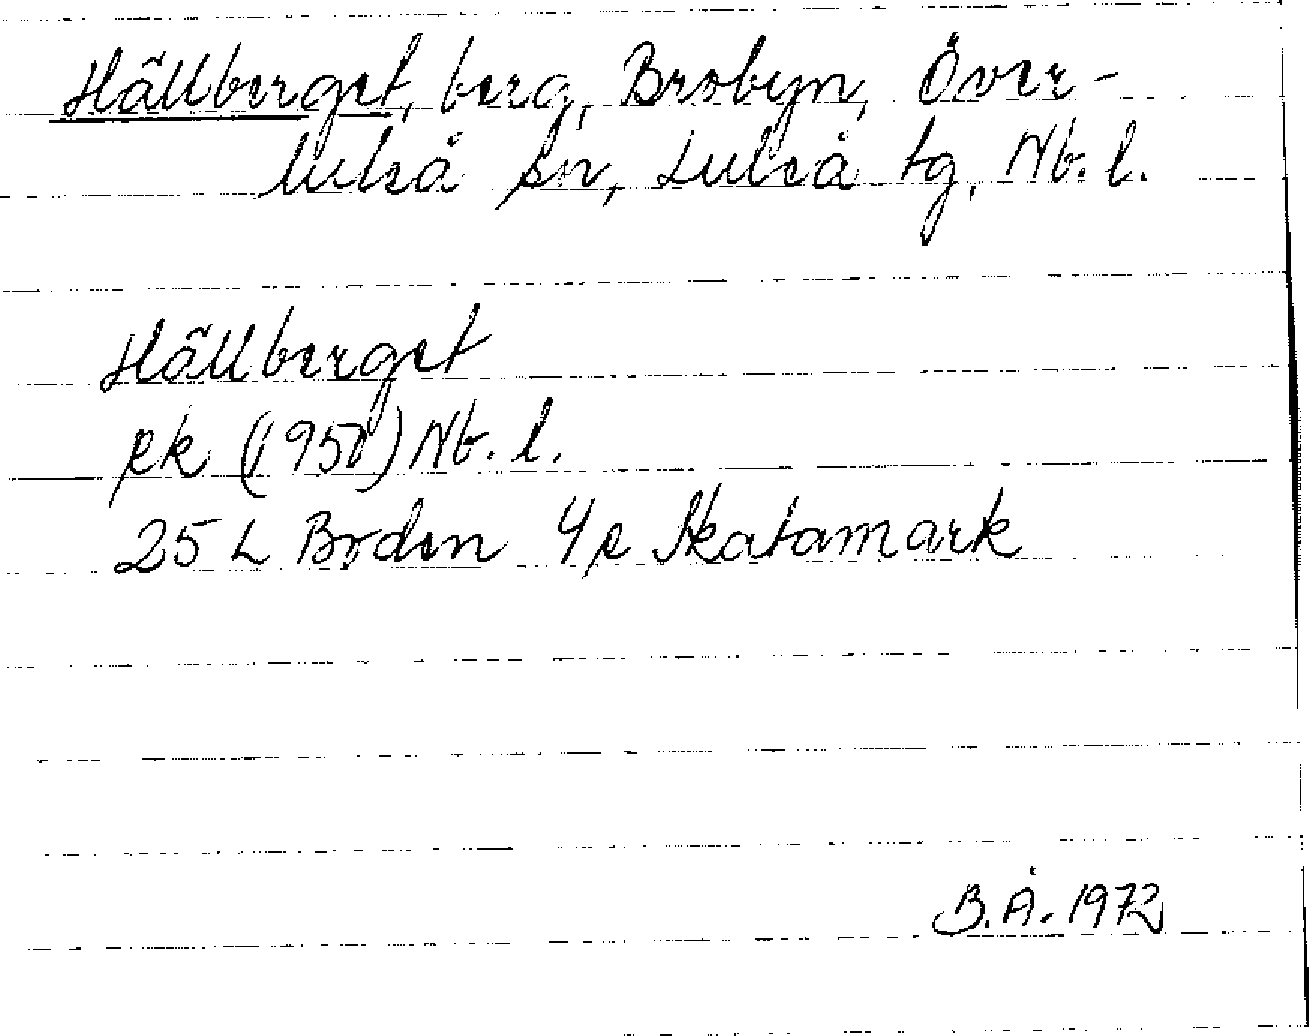 Hällberget, berg, Brobyn, Över-
luleå sn, Luleå tg, Nb. l.
Hällberget
rk (1950) Nb. l.
25 L Boden 4 e Skatamark
B.Å. 1972